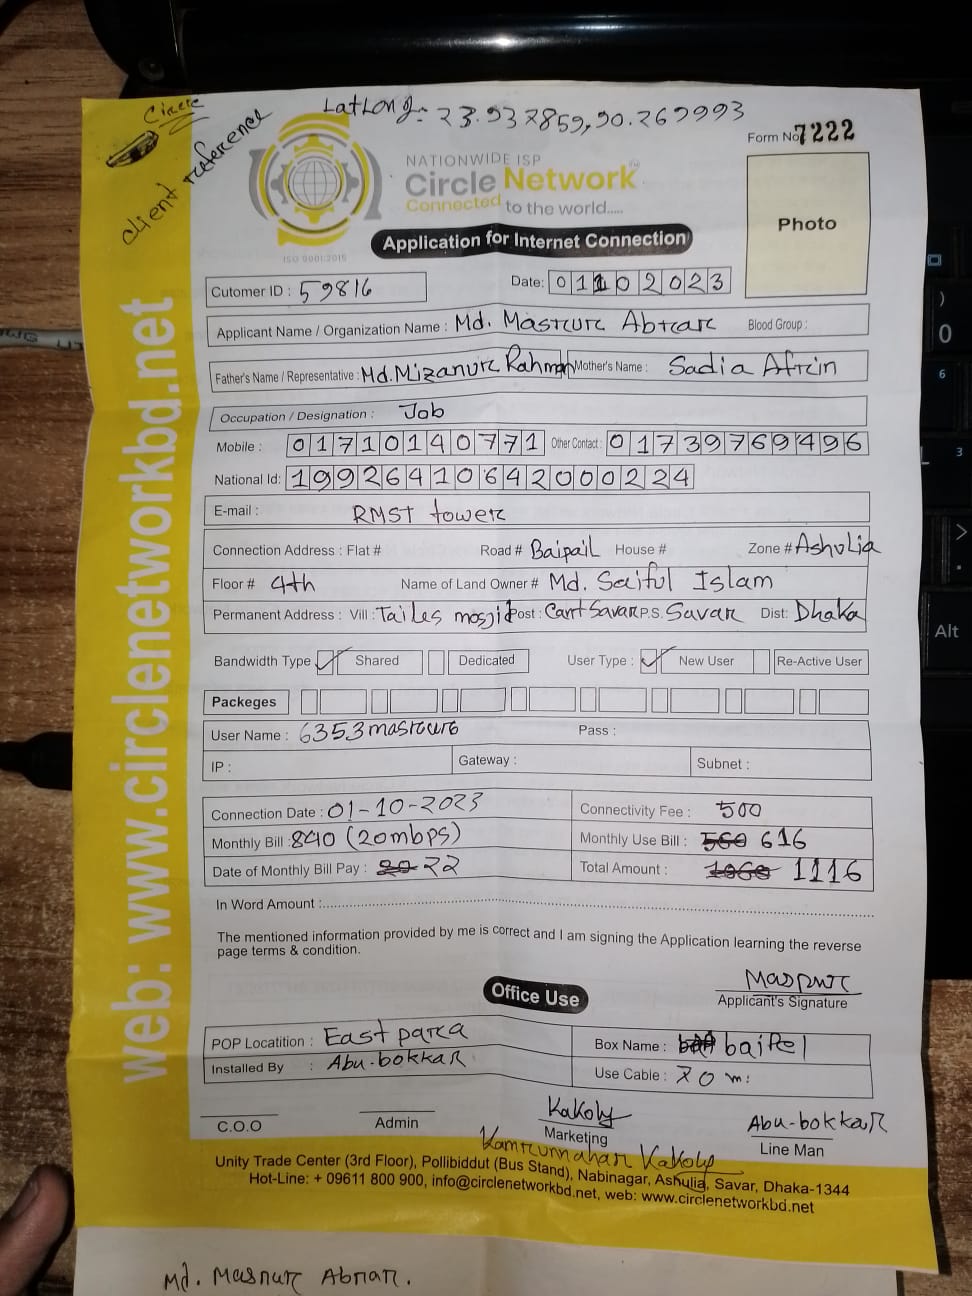 Circle
client reference
LatLong:- 23.937859,90.269993
Form No. 7222
NATIONWIDE ISP
Circle Network
Connected to the world.....
ISO 9001:2015
Application for Internet Connection
Photo
Cutomer ID : 59816
Date: 01102023
Applicant Name / Organization Name : Md. Masrur Abrar Blood Group :
Father's Name / Representative : Md. Mizanur Rahman Mother's Name : Sadia Afrin
Occupation / Designation : Job
Mobile : 01710140771 Other Contact : 01739769496
National Id: 19926410642000224
E-mail : RMST tower
Connection Address : Flat # Road # Baipail House # Zone # Ashulia
Floor # 4th Name of Land Owner # Md. Saiful Islam
Permanent Address : Vill : Tailes mosjid Post : Cant Savar P.S. Savar Dist: Dhaka
Bandwidth Type Shared Dedicated User Type : New User Re-Active User
Packeges
User Name : 6353masrur Pass :
IP : Gateway : Subnet :
Connection Date : 01-10-2023 Connectivity Fee : 500
Monthly Bill : 840 (20mbps) Monthly Use Bill : 560 616
Date of Monthly Bill Pay : 20 22 Total Amount : 1060 1116
In Word Amount :
The mentioned information provided by me is correct and I am signing the Application learning the reverse
page terms & condition.
Masrur
Applicant's Signature
Office Use
POP Locatition : East para Box Name : baipel
Installed By : Abu-bokkar Use Cable : 70 m:
C.O.O
Admin
Kakoly
Marketing
Kamrunnahar Kakoly
Abu-bokkar
Line Man
Unity Trade Center (3rd Floor), Pollibiddut (Bus Stand), Nabinagar, Ashulia, Savar, Dhaka-1344
Hot-Line: + 09611 800 900, info@circlenetworkbd.net, web: www.circlenetworkbd.net
web: www.circlenetworkbd.net
Md. Masrur Abrar.
Alt